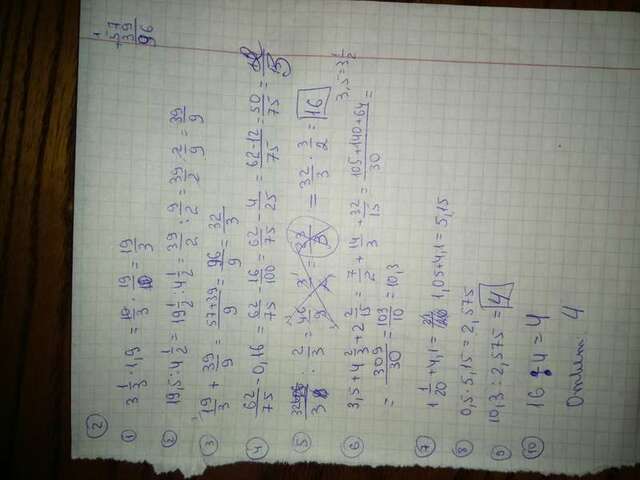 2
1
+57
39
96
① 3 1/3 · 1,9 = 10/3 · 19/10 = 19/3
② 19,5 : 4 1/2 = 19 1/2 : 4 1/2 = 39/2 : 9/2 = 39/2 · 2/9 = 39/9
③ 19/3 + 39/9 = 57+39/9 = 96/9 = 32/3
④ 62/75 - 0,16 = 62/75 - 16/100 = 62/75 - 4/25 = 62-12/75 = 50/75 =
⑤ : 2/3 = = 32/3 · 3/2 = 16
3,5 = 3 1/2
⑥ 3,5 + 4 2/3 + 2 2/15 = 7/2 + 14/3 + 32/15 = 105+140+64/30 =
= 309/30 = 103/10 = 10,3
⑦ 1 1/20 + 4,1 = 21/20 1,05+4,1 = 5,15
⑧ 0,5 · 5,15 = 2,575
⑨ 10,3 : 2,575 = 4
⑩ 16 : 4 = 4
Ответ 4